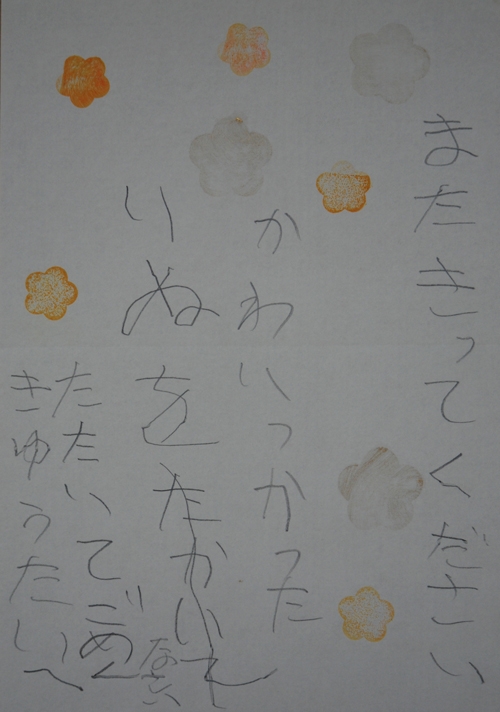 またきってください
かわいっかった
いぬをたかいて
たたいてごめんなさい
きゅうたいへ